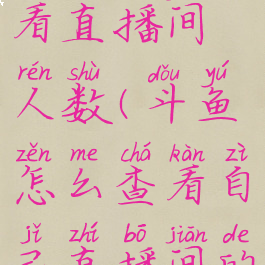 看直播间
rén shù dǒu yú
人数(斗鱼
zěn me chá kàn zì
怎么查看自
jǐ zhí bō jiān de
己直播间的